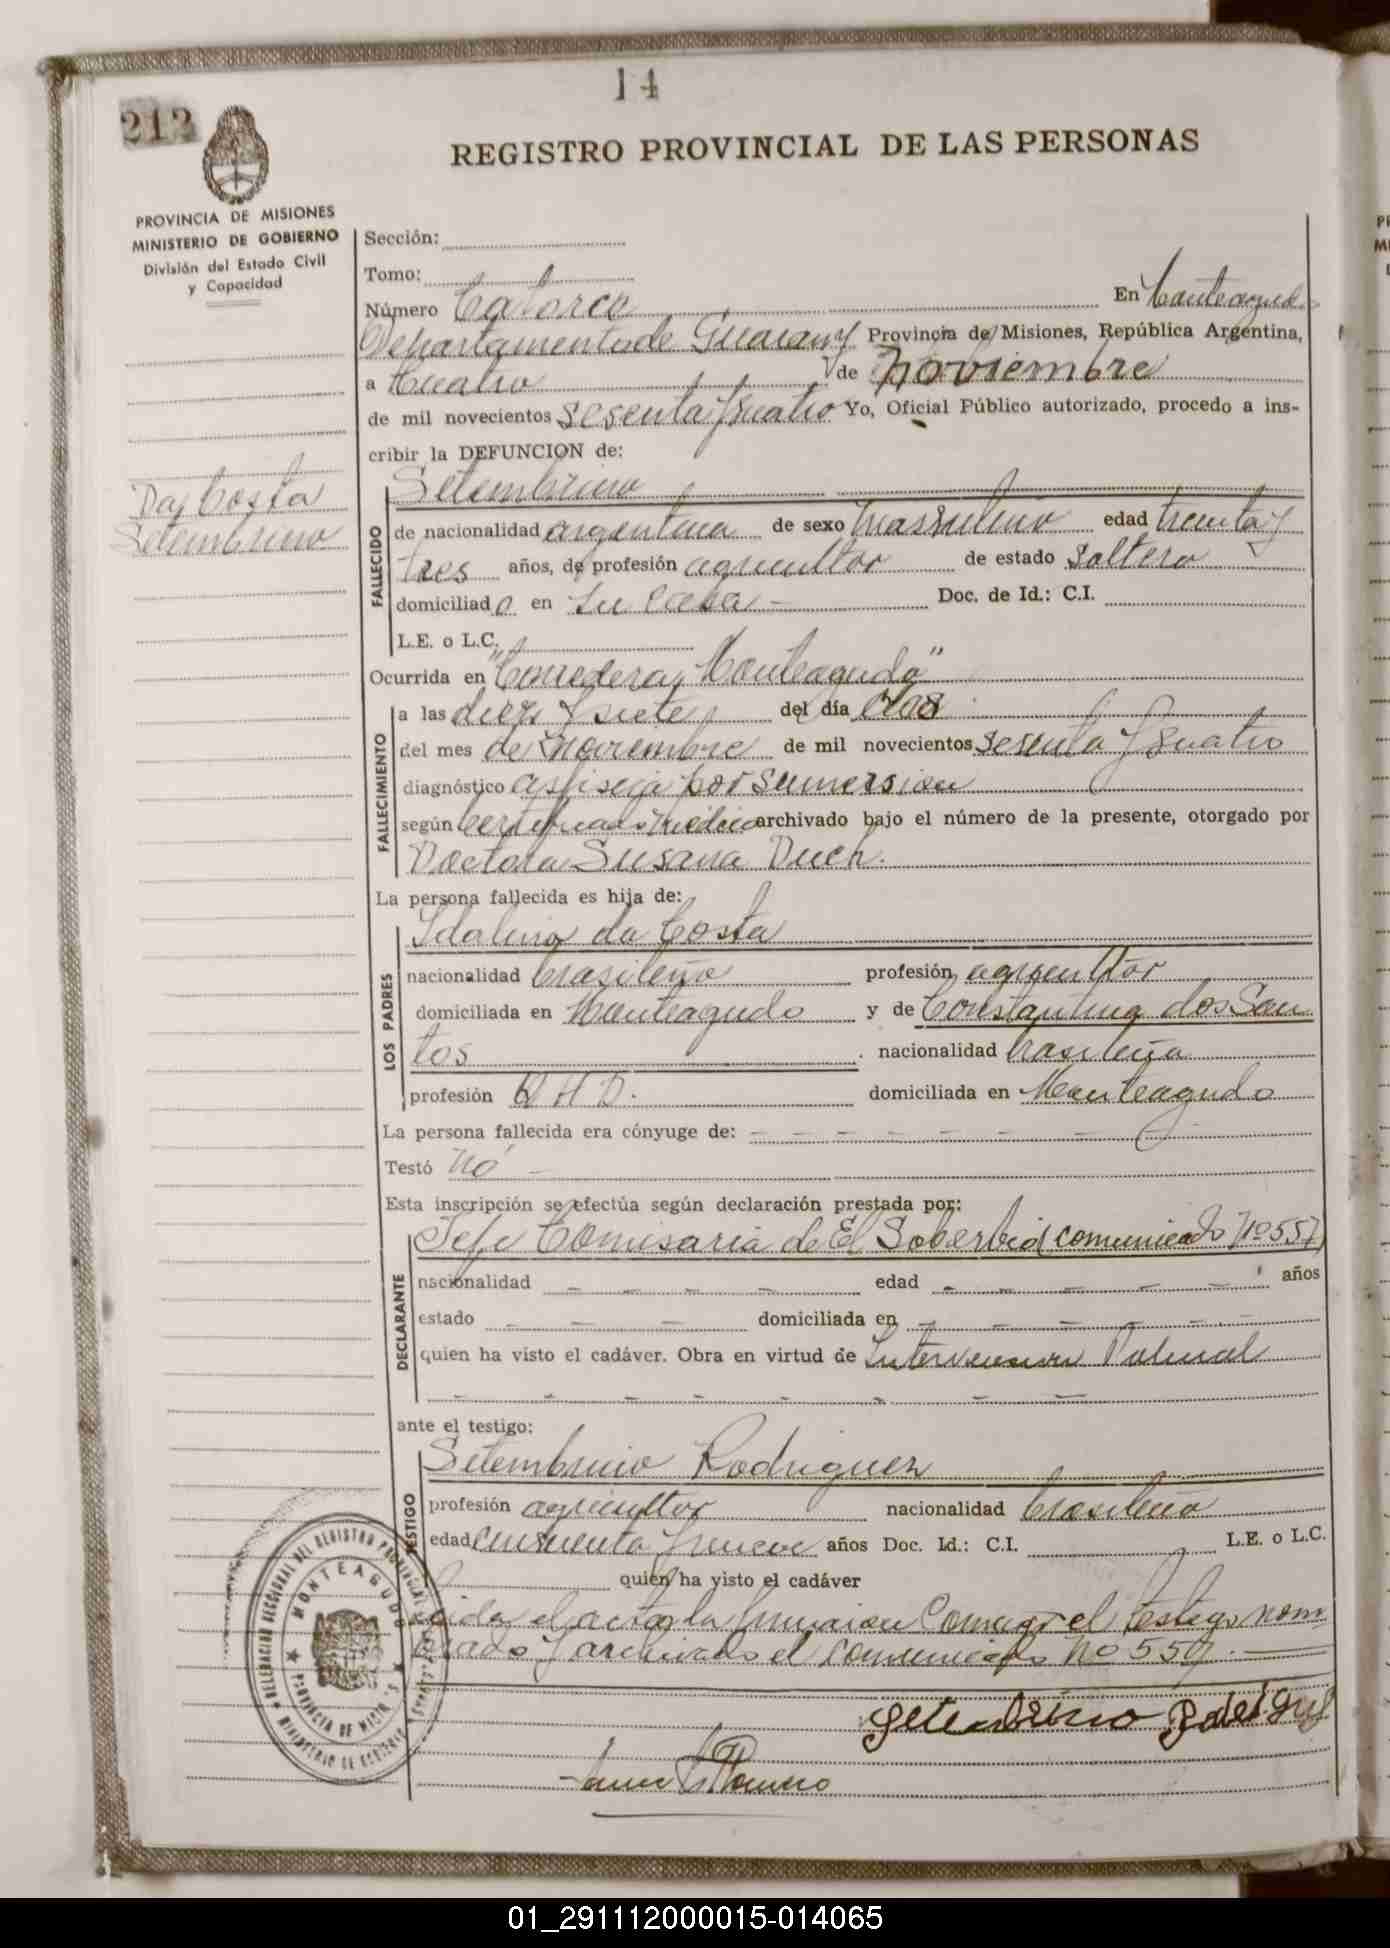 14
212
REGISTRO PROVINCIAL DE LAS PERSONAS
PROVINCIA DE MISIONES
MINISTERIO DE GOBIERNO
División del Estado Civil
y Capacidad
Sección:
Tomo:
Número Catorce En Monteagudo
Departamento de Guarany Provincia de Misiones, República Argentina,
a Cuatro de Noviembre
de mil novecientos sesenta y cuatro Yo, Oficial Público autorizado, procedo a ins-
cribir la DEFUNCION de:
Da Costa
Setembrino
Setembrino
FALLECIDO
de nacionalidad argentina de sexo masculino edad treinta y
tres años, de profesión agricultor de estado soltero
domiciliado en su casa - Doc. de Id.: C.I.
L.E. o L.C.
Ocurrida en "Corredera Monteagudo"
FALLECIMIENTO
a las diez y siete del día dos
del mes de noviembre de mil novecientos sesenta y cuatro
diagnóstico asfixia por sumersion
según certificado médico archivado bajo el número de la presente, otorgado por
Doctora Susana Duch.
La persona fallecida es hija de:
LOS PADRES
Idalino da Costa
nacionalidad brasileño profesión agricultor
domiciliada en Monteagudo y de Constantina dos San
tos nacionalidad brasileña
profesión Q.H.D. domiciliada en Monteagudo
La persona fallecida era cónyuge de: - - - - - - -
Testó No -
Esta inscripción se efectúa según declaración prestada por:
DECLARANTE
Jefe Comisaria de El Soberbio (comunicado No 557)
nacionalidad - - - - edad - - - - - años
estado - - - domiciliada en - - - - -
quien ha visto el cadáver. Obra en virtud de Intervencion Policial
- - - - - - - - -
ante el testigo:
TESTIGO
Setembrino Rodriguez
profesión agricultor nacionalidad brasileño
edad cincuenta y nueve años Doc. Id.: C.I. L.E. o L.C.
quien ha visto el cadáver
Leida el acta la firman Conmigo el testigo nom
brado y archivado el comunicado No 557.
DELEGACION SECCIONAL DEL REGISTRO PROVINCIAL DE LAS PERSONAS
MONTEAGUDO
PROVINCIA DE MISIONES
MINISTERIO DE GOBIERNO
Setembrino Rodrigues
01_291112000015-014065